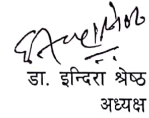 डा. इन्दिरा श्रेष्ठ
अध्यक्ष